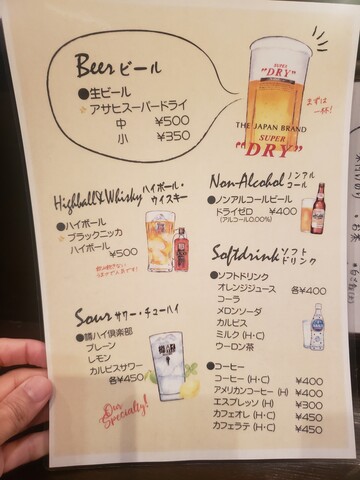 Beer ビール
●生ビール
アサヒスーパードライ
中 ¥500
小 ¥350
SUPER
"DRY"
まずは
一杯!
THE JAPAN BRAND
SUPER
"DRY"
Highball&Whisky ハイボール・
ウイスキー
●ハイボール
ブラックニッカ
ハイボール
¥500
Non-Alcohol ノンアル
コール
●ノンアルコールビール
ドライゼロ ¥400
(アルコール0.00%)
Softdrink ソフト
ドリンク
●ソフトドリンク
オレンジジュース 各¥400
コーラ
メロンソーダ
カルピス
ミルク (H・C)
ウーロン茶
Sour サワー・チューハイ
●樽ハイ倶楽部
プレーン
レモン
カルピスサワー
各¥450
Our
Specialty!
●コーヒー
コーヒー (H・C) ¥400
アメリカンコーヒー (H) ¥400
エスプレッソ (H) ¥300
カフェオレ (H・C) ¥450
カフェラテ (H・C) ¥450